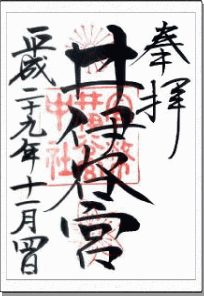 奉拝
井伊谷宮
平成二十九年十一月四日